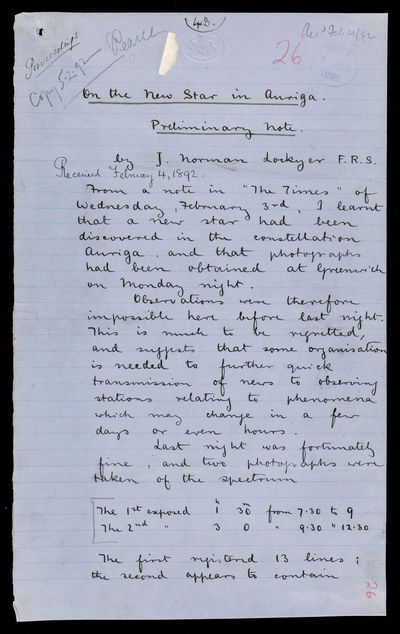 (43.)
Recd Feb 4/92
Proceedings
Copy 5.2.92
26
1892
On the New Star in Auriga.
Preliminary Note.
by J. Norman Lockyer F.R.S.
Received February 4, 1892.
From a note in "The Times" of
Wednesday, February 3rd, I learnt
that a new star had been
discovered in the constellation
Auriga, and that photographs
had been obtained at Greenwich
on Monday night.
Observations were therefore
impossible here before last night.
This is much to be regretted,
and suggests that some organisation
is needed to further quick
transmission of news to observing
stations relating to phenomena
which may change in a few
days or even hours.
Last night was fortunately
fine, and two photographs were
taken of the spectrum
The 1st exposed 1h 30m from 7.30 to 9
The 2nd " 3 0 " 9.30 " 12.30
The first registered 13 lines;
the second appears to contain
26